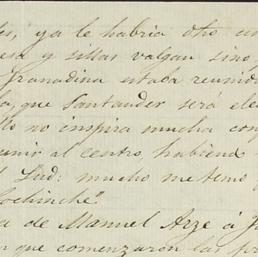 ya le habria otro
y sillas valgan sino
Granadina estaba reunid
que Santander será ele
no inspira mucha con
unir al centro, hubiend
Sud: mucho me temo
Cochinche"
a de Manuel Arze á J
n que comenzaron las